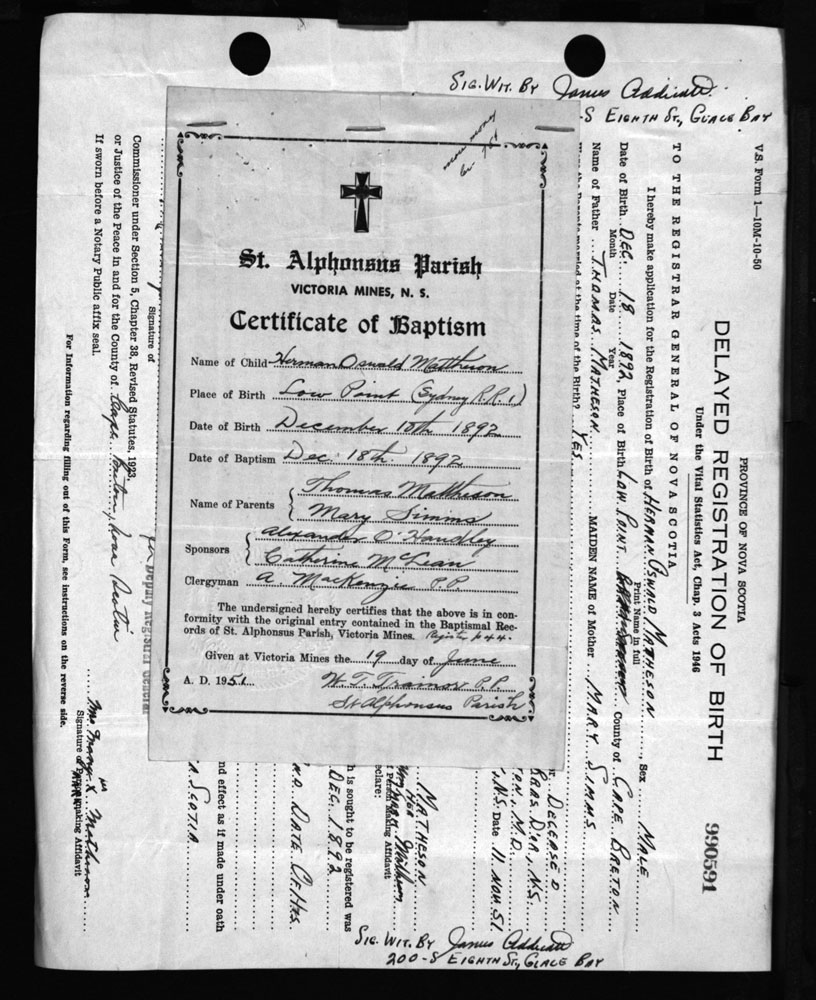 SIG. WIT. BY James Addicott
-S EIGHTH ST., GLACE BAY
St. Alphonsus Parish
VICTORIA MINES, N. S.
Certificate of Baptism
Name of Child Herman Oswald Mattheson
Place of Birth Low Point (Sydney R.R.1)
Date of Birth December 10th 1892
Date of Baptism Dec. 18th 1892
Name of Parents { Thomas Mattheson
Mary Simms
Sponsors { Alexander O'Handley
Catherine McLean
Clergyman A. MacKenzie P.P.
The undersigned hereby certifies that the above is in con-
formity with the original entry contained in the Baptismal Rec-
ords of St. Alphonsus Parish, Victoria Mines. Register p 44.
Given at Victoria Mines the 19 day of June
A. D. 1951 W. T. Trainor P.P.
St Alphonsus Parish
V.S. Form 1—10M-10-50
PROVINCE OF NOVA SCOTIA
DELAYED REGISTRATION OF BIRTH
990591
Under the Vital Statistics Act, Chap. 3 Acts 1946
TO THE REGISTRAR GENERAL OF NOVA SCOTIA
I hereby make application for the Registration of Birth of HERMAN OSWALD MATHESON, Sex MALE
Print Name in full
Date of Birth DEC. 18 1892, Place of Birth LOW POINT County of CAPE BRETON
Month Date Year
Name of Father THOMAS MATHESON MAIDEN NAME of Mother MARY SIMMS
Were the Parents married at the time of the Birth? YES
DECEASED
BRAS D'OR, N.S.
TON, M.D.
N.S. Date 11 NOV. 51
MATHESON
HER
of Person Making Affidavit
eclare:
h is sought to be registered was
DEC. 1892
AND DATE OF HIS
nd effect as if made under oath
A SCOTIA
Signature of
Deputy Registrar General
Commissioner under Section 5, Chapter 38, Revised Statutes, 1923,
or Justice of the Peace in and for the County of Cape Breton, Nova Scotia
If sworn before a Notary Public affix seal.
Mrs. Mary X Matheson
Signature of Person making Affidavit
For Information regarding filling out of this Form, see instructions on the reverse side.
SIG. WIT. BY James Addicott
200-S EIGHTH ST., GLACE BAY